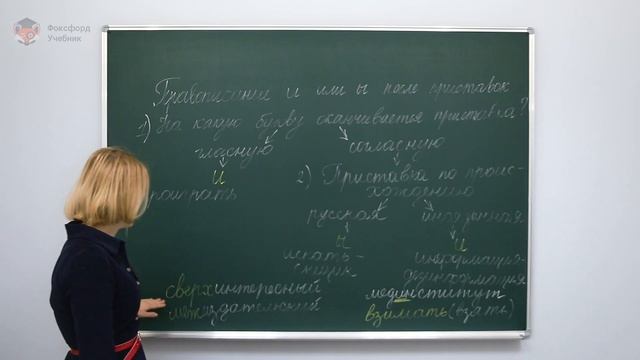 Фоксфорд
Учебник
Правописание и или ы после приставок
1) На какую букву оканчивается приставка?
гласную согласную
и 2) Приставка по проис-
хождению
русская иноязычная
и
искать- информация-
дезинформация
сверхинтересный мединститут
межиздательский взимать (взять)